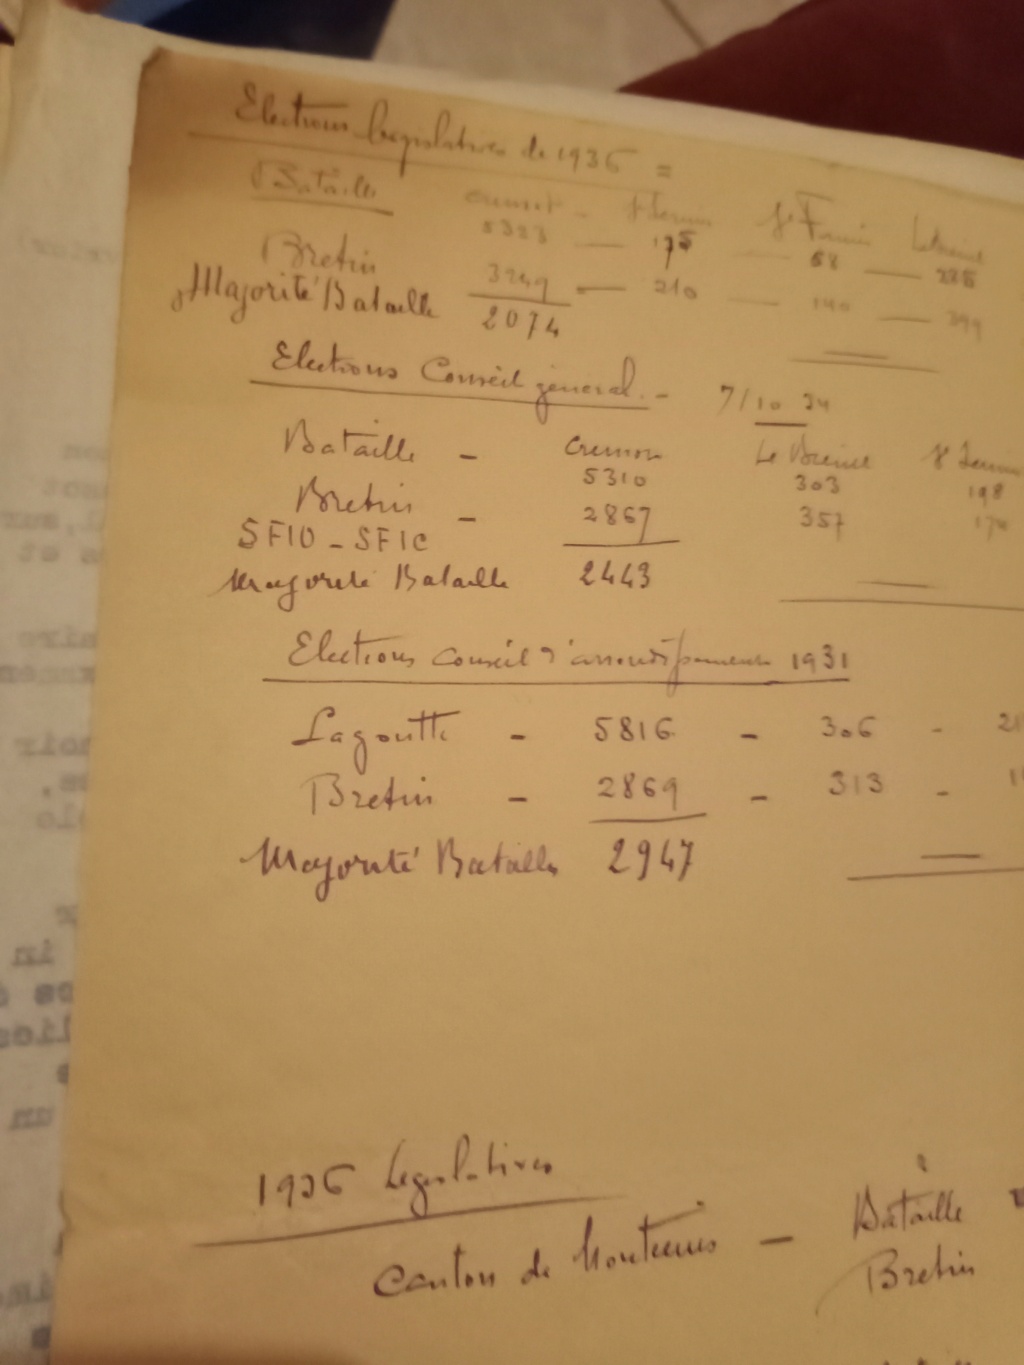 Elections Législatives de 1936 =
Bataille Creusot - St Sernin St Firmin Le Breuil
5323 — 175 — 68 — 285
Bretin 3249 — 210 — 140 — 399
Majorité Bataille 2074
Elections Conseil général. - 7/10 34
Bataille - Creusot Le Breuil St Sernin
5310 303 198
Bretin - 2867 357 174
SFIO - SFIC
Majorité Bataille 2443
Elections Conseil d'arrondissement 1931
Lagoutte - 5816 - 306 -
Bretin - 2869 - 313 -
Majorité Bataille 2947
1936 Legislatives
Canton de Montcenis - Bataille
Bretin